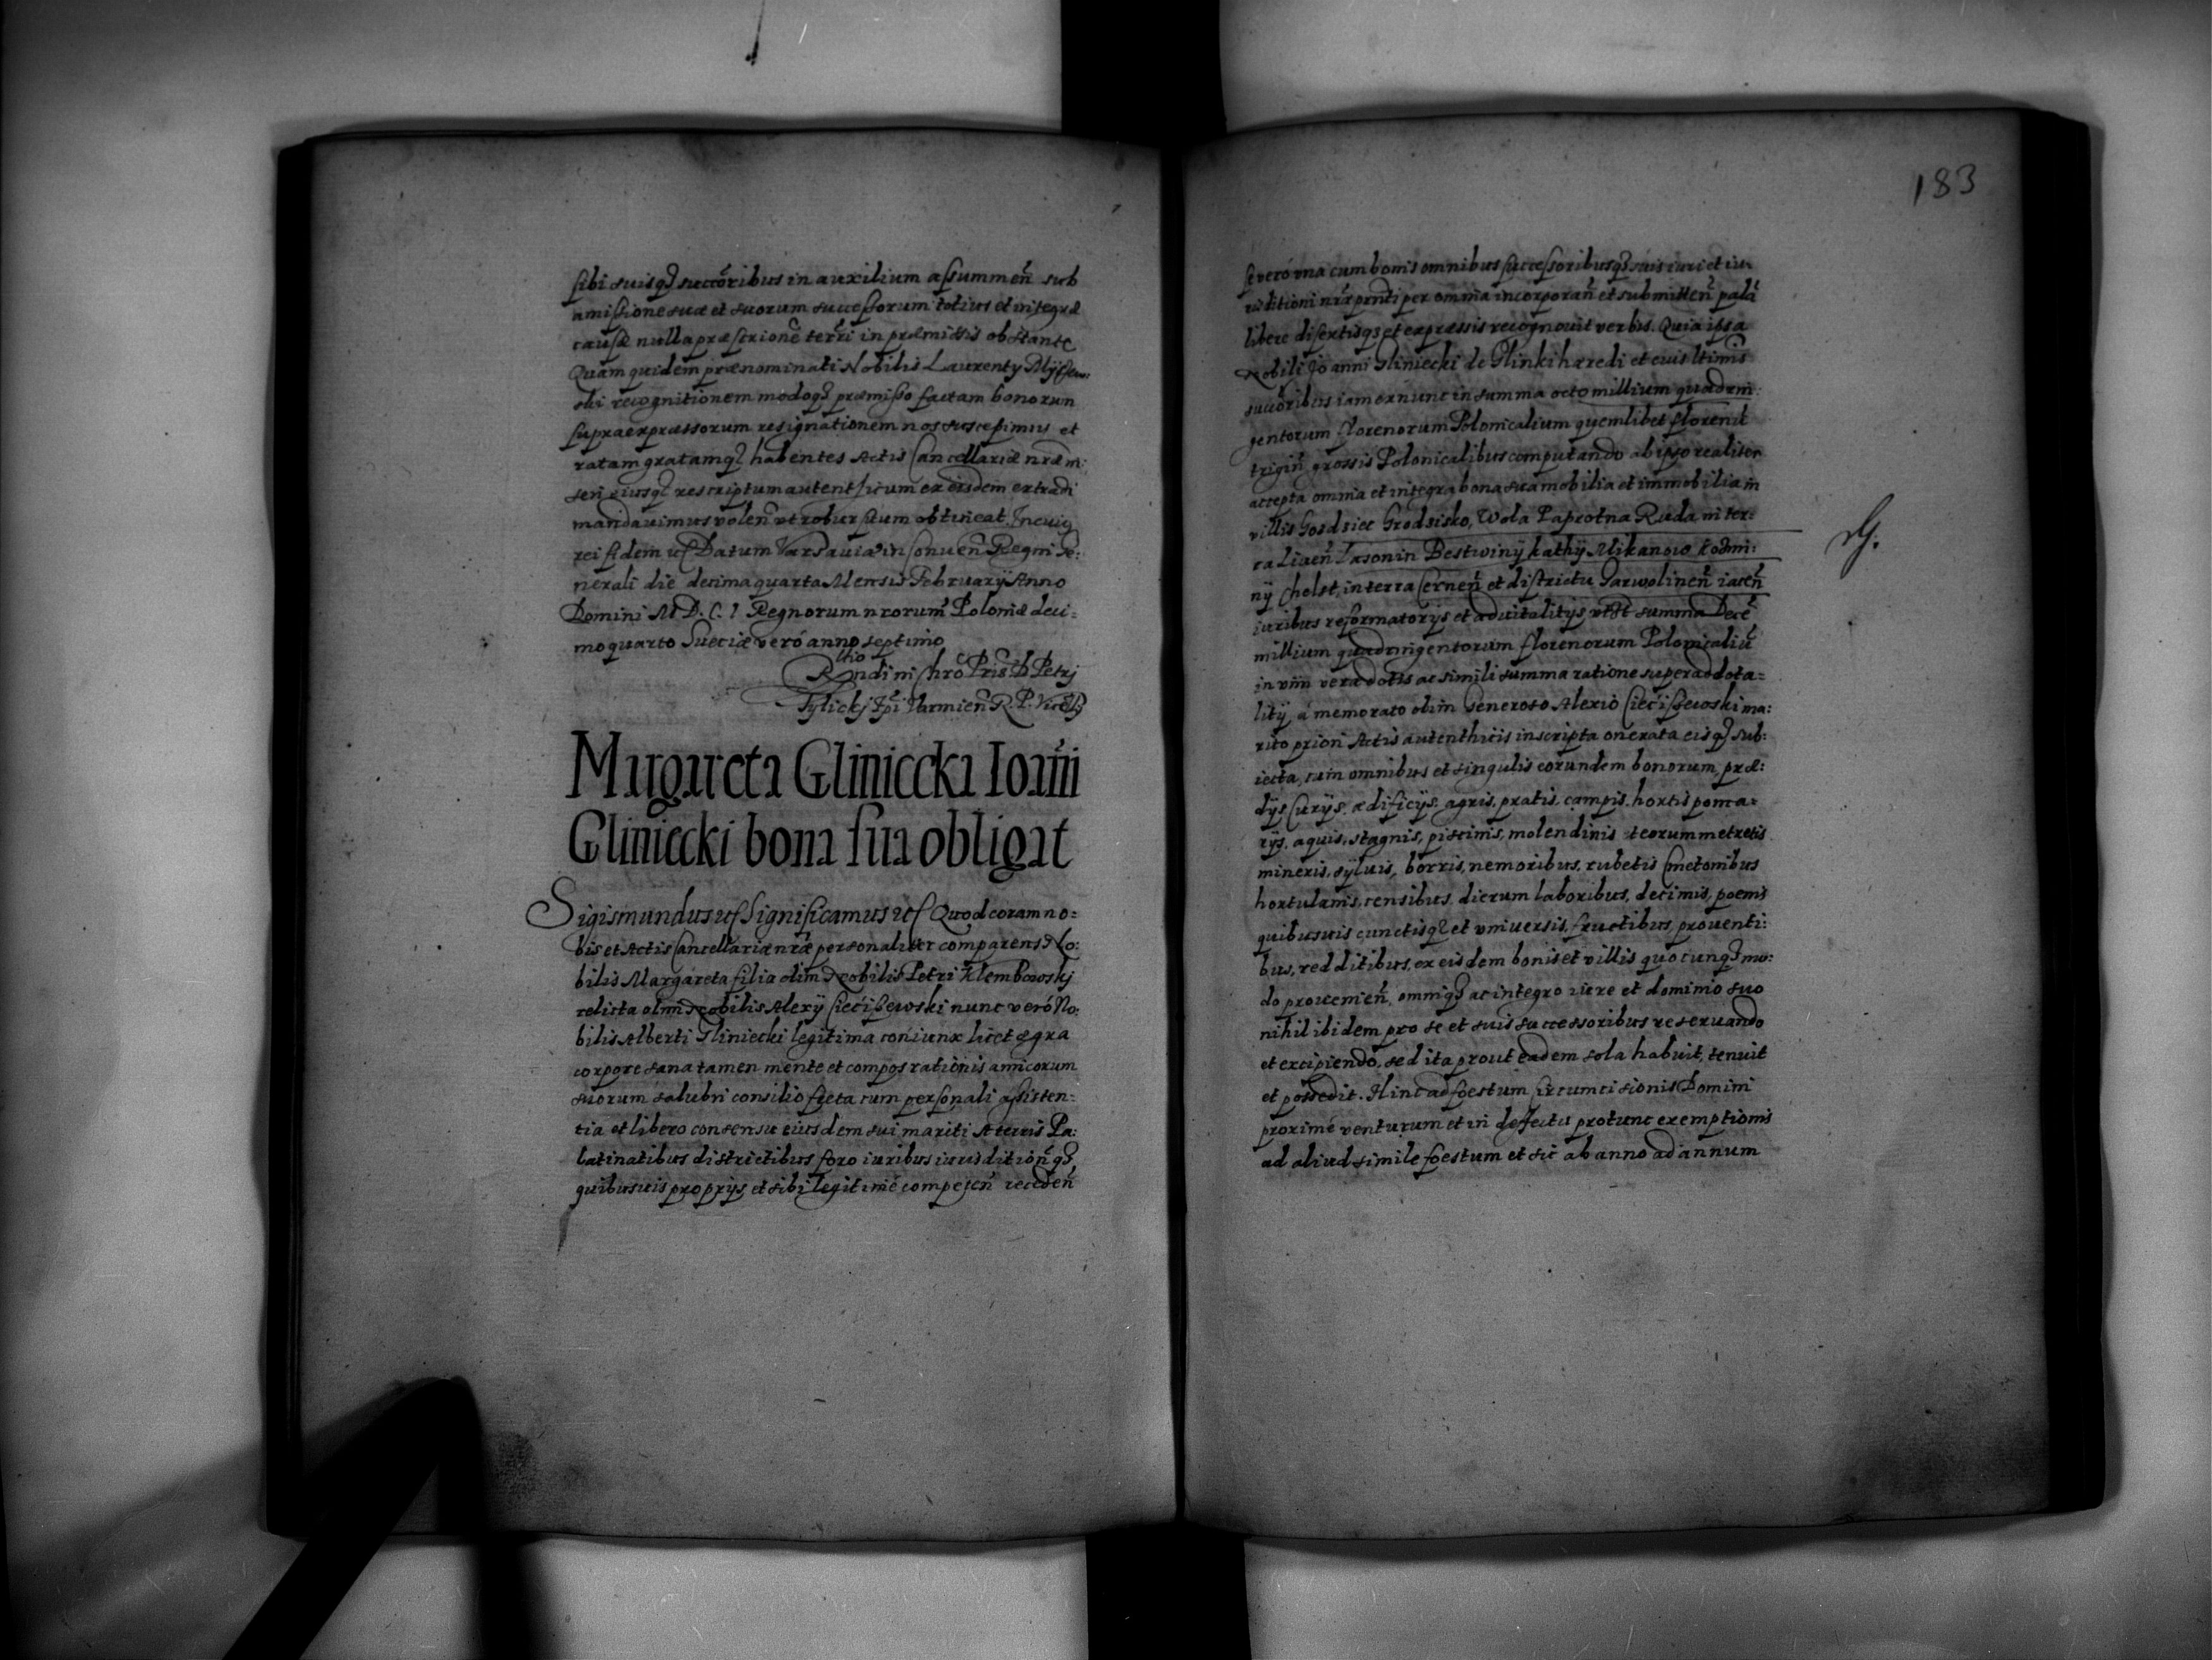 sibi suisq₃ succõribus in auxilium assummeñ sub
amissione suæ et suorum successorum totius et integræ
causæ nulla præscrione terrĩ in præmissis obstante
Quam quidem prænominati Nobilis Laurenty
ski recognitionem modoq₃ præmisso factam bonorun
supraexpræssorum resignationem nos suscepimus et
ratam gratamq₃ habentes Actis Cancellariæ nr̃æ in:
señ eiusq₃ rescriptum autentficum ex eisdem extradi
mandauimus voleñ vt robur suum obtineat. In cuiq
rei fidem &c Datum Varsauiæ in Conueñ Regni Ge:
nerali die decima quarta Mensis February Anno
Domini M.D.C.I Regnorum nrorum Poloniæ deci=
moquarto Sueciæ veró anno septimo
Rltio Rndi in Chrõ Pris D Petrj
Tylickj Epi Varmieñ R.P. Vice
Margareta Gliniecka Ioañi
Gliniecki bona sua obligat
Sigismundus &c Significamus &c Quod coram no=
bis et Actis Cancellariæ nr̃æ personaliter comparens No:
bilis Margareta filia olim Nobilis Petri Klembowskj
relicta olim Nobilis Alexÿ Ciecißewski nunc veró No:
bilis Alberti Gliniecki legitima coniunx licet ægra
corpore sana tamen mente et compos rationis amicorum
suorum salubri consilio freta cum personali assisten=
tia et libero consensu eiusdem sui mariti A terris Pa:
latinatibus districtibus foro iuribus iurisditioñq₃
quibusuis proprÿs et sibi legitimé competeñ recedeñ
183
se veró vna cum bonis omnibus successoribusq₃ suis iuri et iu=
risditioni nræ prnti per omnia incorporañ et submitteñ palã
libere disertisq₃ et expræssis recognouit verbis. Quia ipsa
Nobili Joanni Gliniecki de Glinki hæredi et eius ltimis
succõribus iam ex nunc in summa octo millium quadrin:
gentorum florenorum Polonicalium quemlibet florenũ
trigiñ grossis Polonicalibus computando ab ipso realiter
accepta omnia et integra bona sua mobilia et immobilia in
villis Gosdziec Grodzisko, Wola Paprotna Ruda in ter:
ra Liueñ Tasonin Bestwinÿ kathÿ Mikanow Kozmi:
nÿ Chelst, in terra Cerneñ et districtu Garwolineñ iaceñ
iuribus reformatorÿs et aduitalitÿs vtpt summa Decẽ
millium quadringentorum florenorum Polonicaliũ
in vim veræ dotis ac simili summa ratione superaddota=
litÿ á memorato olim Generoso Alexio Ciecißewski ma:
rito priori Actis autenthicis inscripta onerata eisq₃ sub:
iecta, cum omnibus et singulis eorundem bonorum, præ:
dÿs Curÿs. ædificÿs. agris, pratis, campis, hortis poma=
rÿs, aquis, stagnis, piscinis, molendinis et eorum metretis
mineris, syluis, borris, nemoribus, rubetis Cmetonibus
hortulanis, censibus, dierum laboribus, decimis, poenis
quibusuis cunctisq₃ et vniuersis, fructibus, prouenti:
bus, redditibus, ex eisdem bonis et villis quocunq₃ mo:
do prouenieñ, omniq₃ ac integro iure et dominio suo
nihil ibidem pro se et suis successoribus reseruando
et excipiendo, sed ita prout eadem sola habuit, tenuit
et possedit. Hinc ad foestum Circumcisionis Domini
proximé venturum et in deffectu protunc exemptionis
ad aliud simile foestum et sic ab anno ad annum